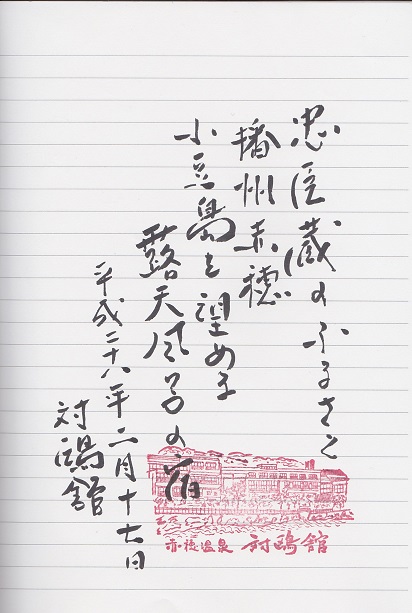 忠臣蔵のふるさと
播州赤穂
小豆島を望める
露天風呂の宿
平成二十八年二月十七日
対鴎館
赤穂温泉 対鴎館